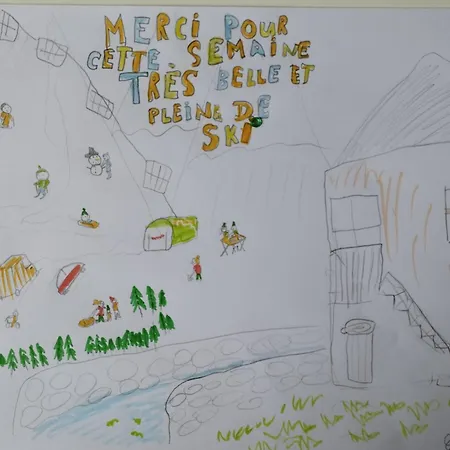 MERCI POUR
CETTE SEMAINE
TRÈS BELLE ET
PLEING DE
SKI